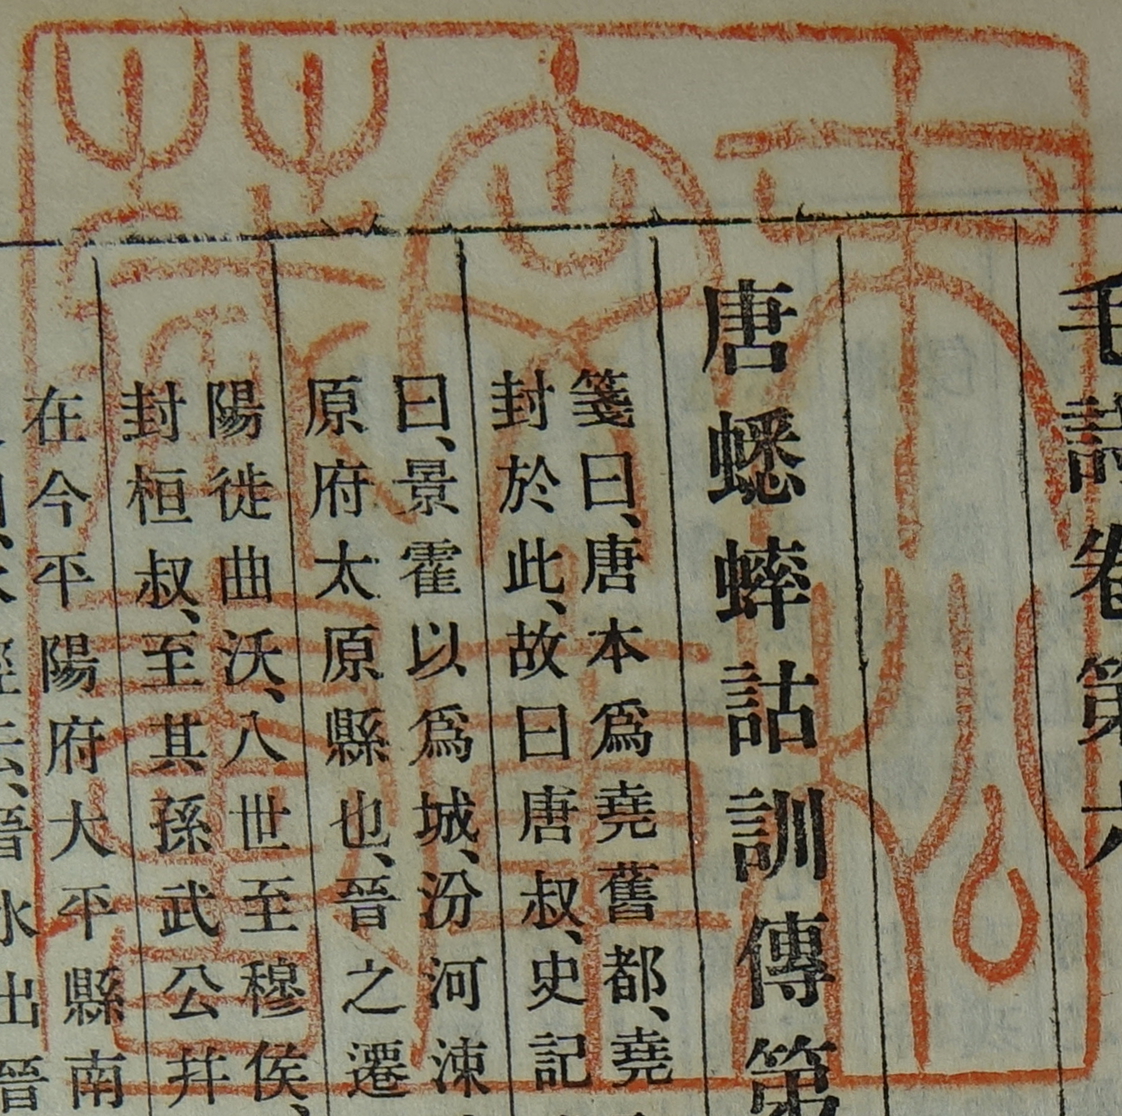 毛詩卷第六
唐蟋蟀詁訓傳第
箋曰、唐本爲堯舊都、堯
封於此、故曰唐叔、史記
曰、景霍以爲城、汾河涑
原府太原縣也、晉之遷
陽徙曲沃、八世至穆侯、
封桓叔、至其孫武公幷
在今平陽府大平縣南
水經云、晉水出晉